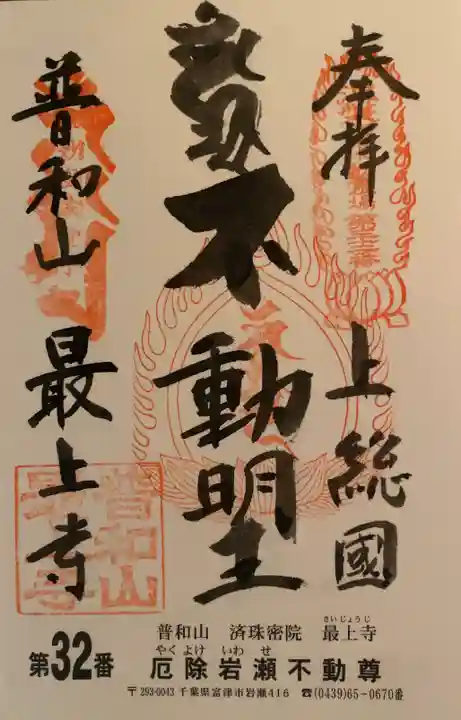 奉拝
上總國
不動明王
普和山 最上寺
普和山
最上寺
普和山 済珠密院 最上寺
さいじょうじ
第32番
やくよけ いわせ
厄除岩瀬不動尊
〒293-0043 千葉県富津市岩瀬416 ☎(0439)65-0670番